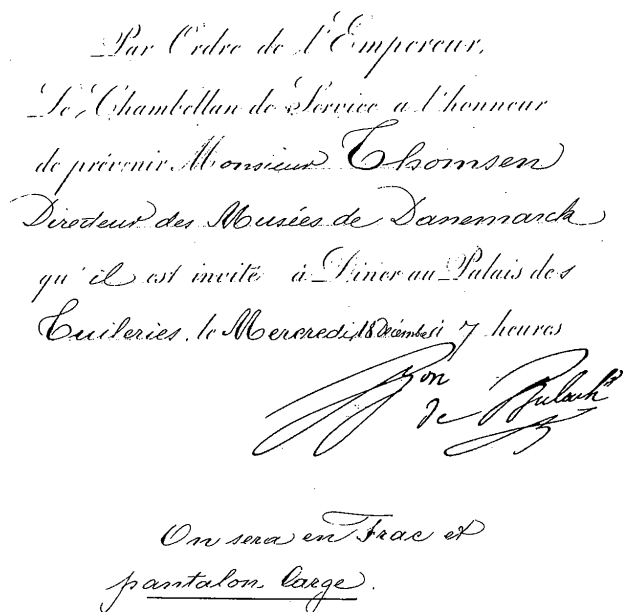 Par Ordre de l'Empereur,
Le Chambellan de Service a l'honneur
de prévenir Monsieur Thomsen
Directeur des Musées de Danemarck
qu'il est invité à Diner au Palais des
Tuileries, le Mercredi 18 Décembre à 7 heures
Bon
de Bulach
On sera en Frac et
pantalon large.